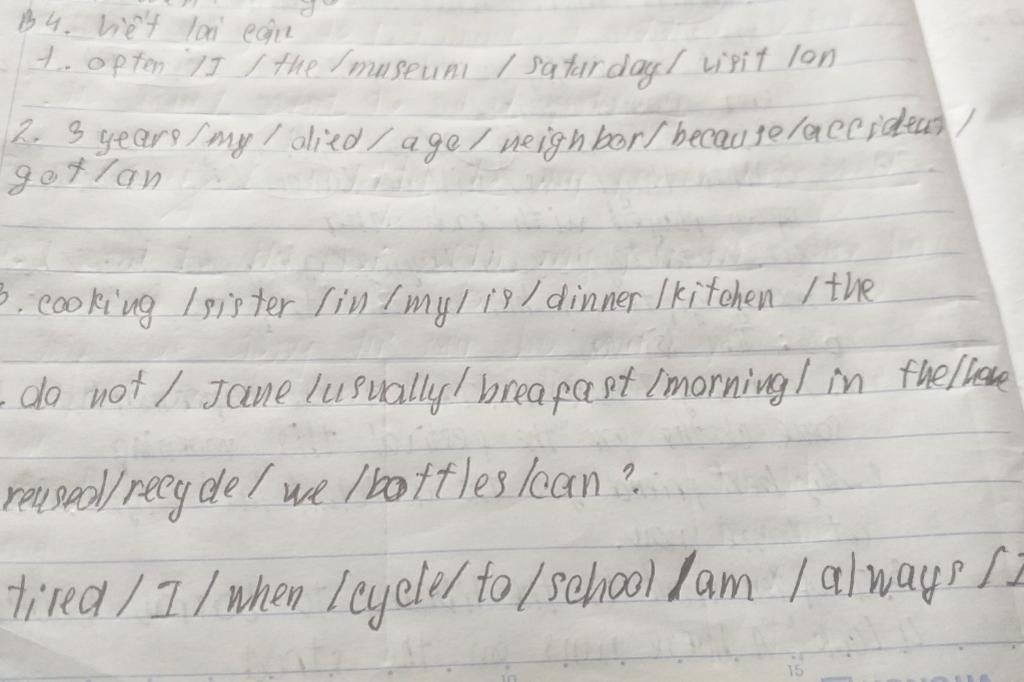 B4. Viết lại câu
1. opten / I / the / museum / saturday / visit / on
2. 3 years / my / died / age / neighbor / because / accident /
got / an
3. cooking / sister / in / my / is / dinner / kitchen / the
. do not / Jane / usually / breafast / morning / in the / have
reused / recycle / we / bottles / can ?
tired / I / when / cycle / to / school / am / always / I